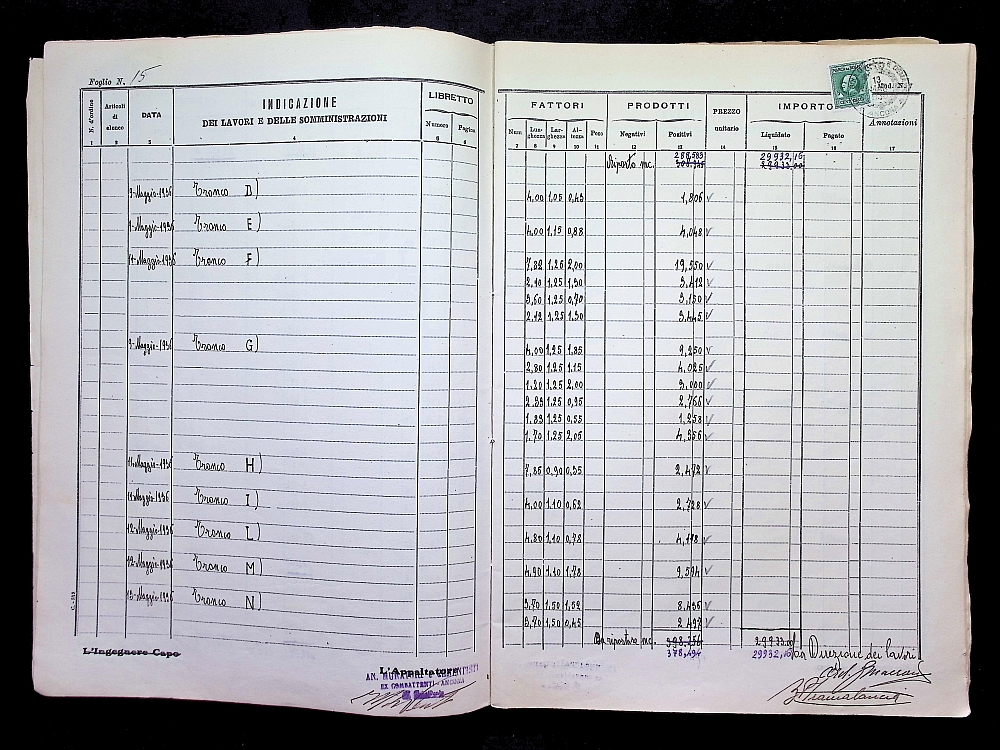 Foglio N. 15
N. d'ordine
Articoli di elenco
DATA
INDICAZIONE
DEI LAVORI E DELLE SOMMINISTRAZIONI
LIBRETTO
Numero
Pagina
1 2 3 4 5 6
9-Maggio-1936 Tronco D)
9-Maggio-1936 Tronco E)
11-Maggio-1936 Tronco F)
9-Maggio-1936 Tronco G)
11-Maggio-1936 Tronco H)
11-Maggio-1936 Tronco I)
12-Maggio-1936 Tronco L)
12-Maggio-1936 Tronco M)
13-Maggio-1936 Tronco N)
L'Ingegnere Capo
L'Appaltatore
EX COMBATTENTI - ANCONA
Mod. N. 7
FATTORI
PRODOTTI
PREZZO unitario
IMPORTO
Annotazioni
Num
Lunghezza
Larghezza
Altezza
Peso
Negativi
Positivi
Liquidato
Pagato
7 8 9 10 11 12 13 14 15 16 17
Riporto mc. 288,583 29932,16
29933,00
4,00 1,05 0,43 1,806
4,00 1,15 0,88 4,048
7,82 1,25 2,00 19,550
2,10 1,25 1,30 3,412
3,60 1,25 0,70 3,150
2,12 1,25 1,30 3,445
4,00 1,25 1,85 9,250
2,80 1,25 1,15 4,025
1,20 1,25 2,00 3,000
2,33 1,25 0,95 2,766
1,83 1,25 0,55 1,258
1,70 1,25 2,05 4,356
7,85 0,90 0,35 2,472
4,00 1,10 0,62 2,728
4,80 1,10 0,78 4,118
4,90 1,10 1,78 9,594
3,70 1,50 1,52 8,436
3,70 1,50 0,45 2,497
Da riportare mc. 398,256 29933,00
378,494 29932,16
La Direzione dei lavori